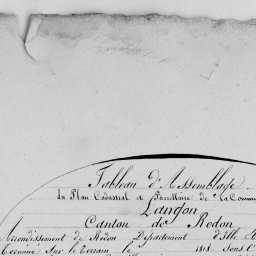 Tableau d'Assemblage
du Plan Cadastral et Parcellaire de la Commune
Langon
Canton de Redon
Arrondissement de Redon Département d'Ille
Terminé sur le terrain le 1818 sous